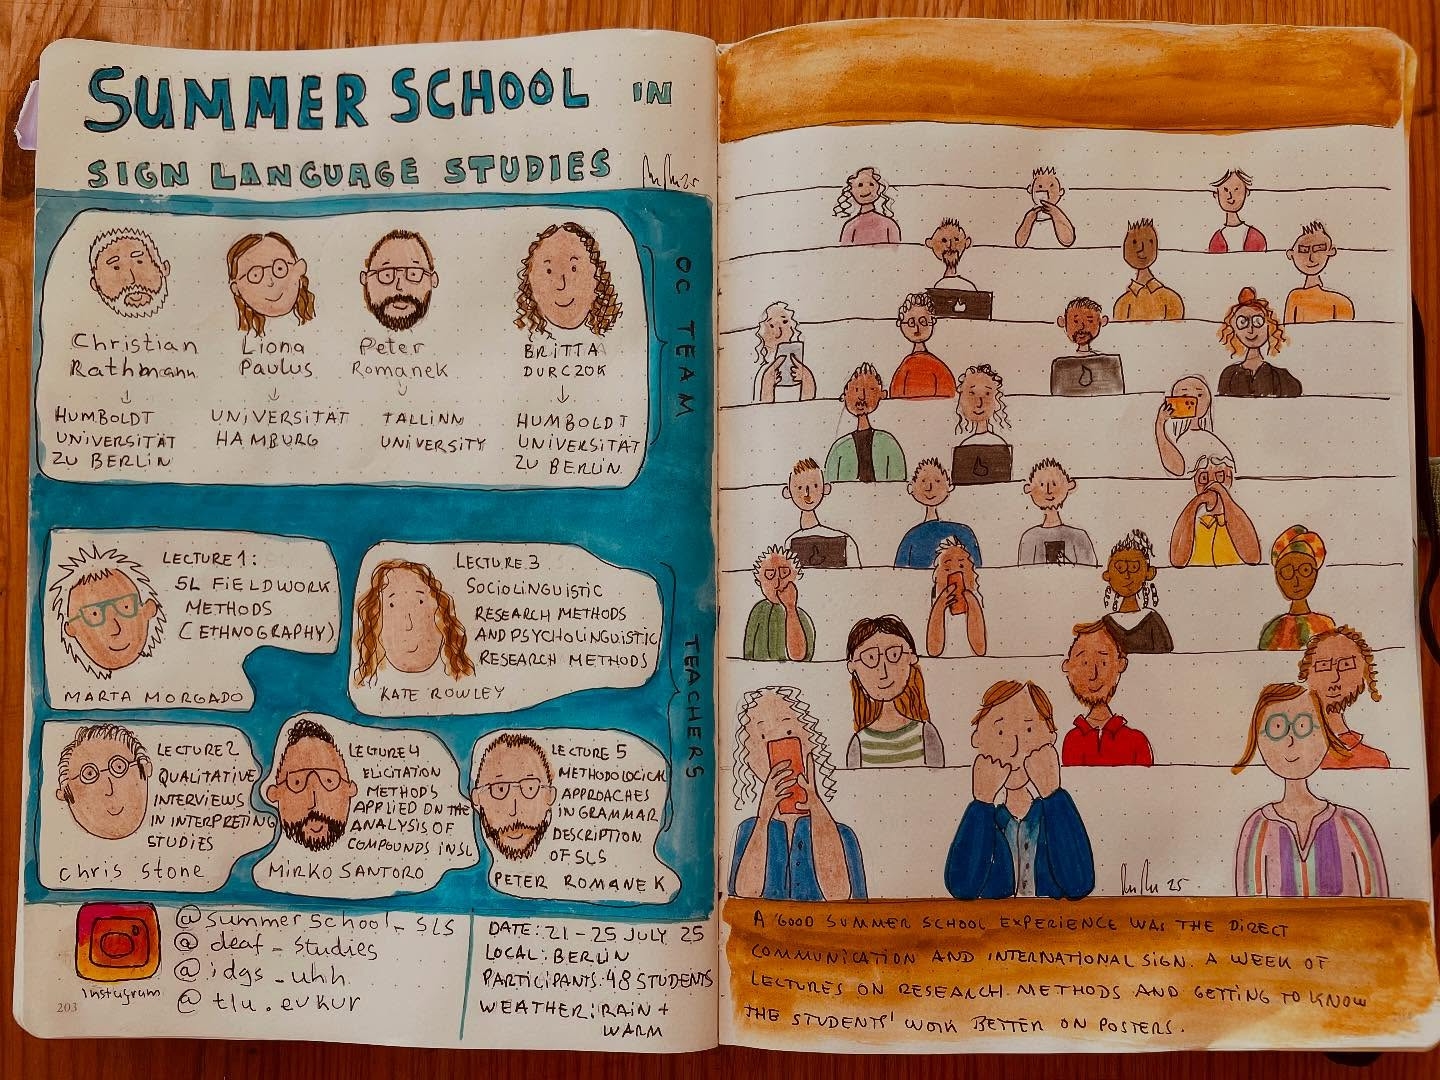 SUMMER SCHOOL IN
SIGN LANGUAGE STUDIES
OC TEAM
Christian
Rathmann
HUMBOLDT
UNIVERSITÄT
ZU BERLIN
Liona
Paulus
UNIVERSITÄT
HAMBURG
Peter
Romanek
TALLINN
UNIVERSITY
BRITTA
DURCZOK
HUMBOLDT
UNIVERSITÄT
ZU BERLIN
TEACHERS
LECTURE 1:
SL FIELDWORK
METHODS
(ETHNOGRAPHY)
MARTA MORGADO
LECTURE 3
SOCIOLINGUISTIC
RESEARCH METHODS
AND PSYCHOLINGUISTIC
RESEARCH METHODS
KATE ROWLEY
LECTURE 2
QUALITATIVE
INTERVIEWS
IN INTERPRETING
STUDIES
Chris Stone
LECTURE 4
ELICITATION
METHODS
APPLIED ON THE
ANALYSIS OF
COMPOUNDS IN SL
MIRKO SANTORO
LECTURE 5
METHODOLOGICAL
APPROACHES
IN GRAMMAR
DESCRIPTION
OF SLS
PETER ROMANEK
Instagram
@summerschool_SLS
@deaf_studies
@idgs_uhh
@tlu.evkur
DATE: 21-25 JULY 25
LOCAL: BERLIN
PARTICIPANTS: 48 STUDENTS
WEATHER: RAIN +
WARM
203
25
A GOOD SUMMER SCHOOL EXPERIENCE WAS THE DIRECT
COMMUNICATION AND INTERNATIONAL SIGN. A WEEK OF
LECTURES ON RESEARCH METHODS AND GETTING TO KNOW
THE STUDENTS' WORK BETTER ON POSTERS.